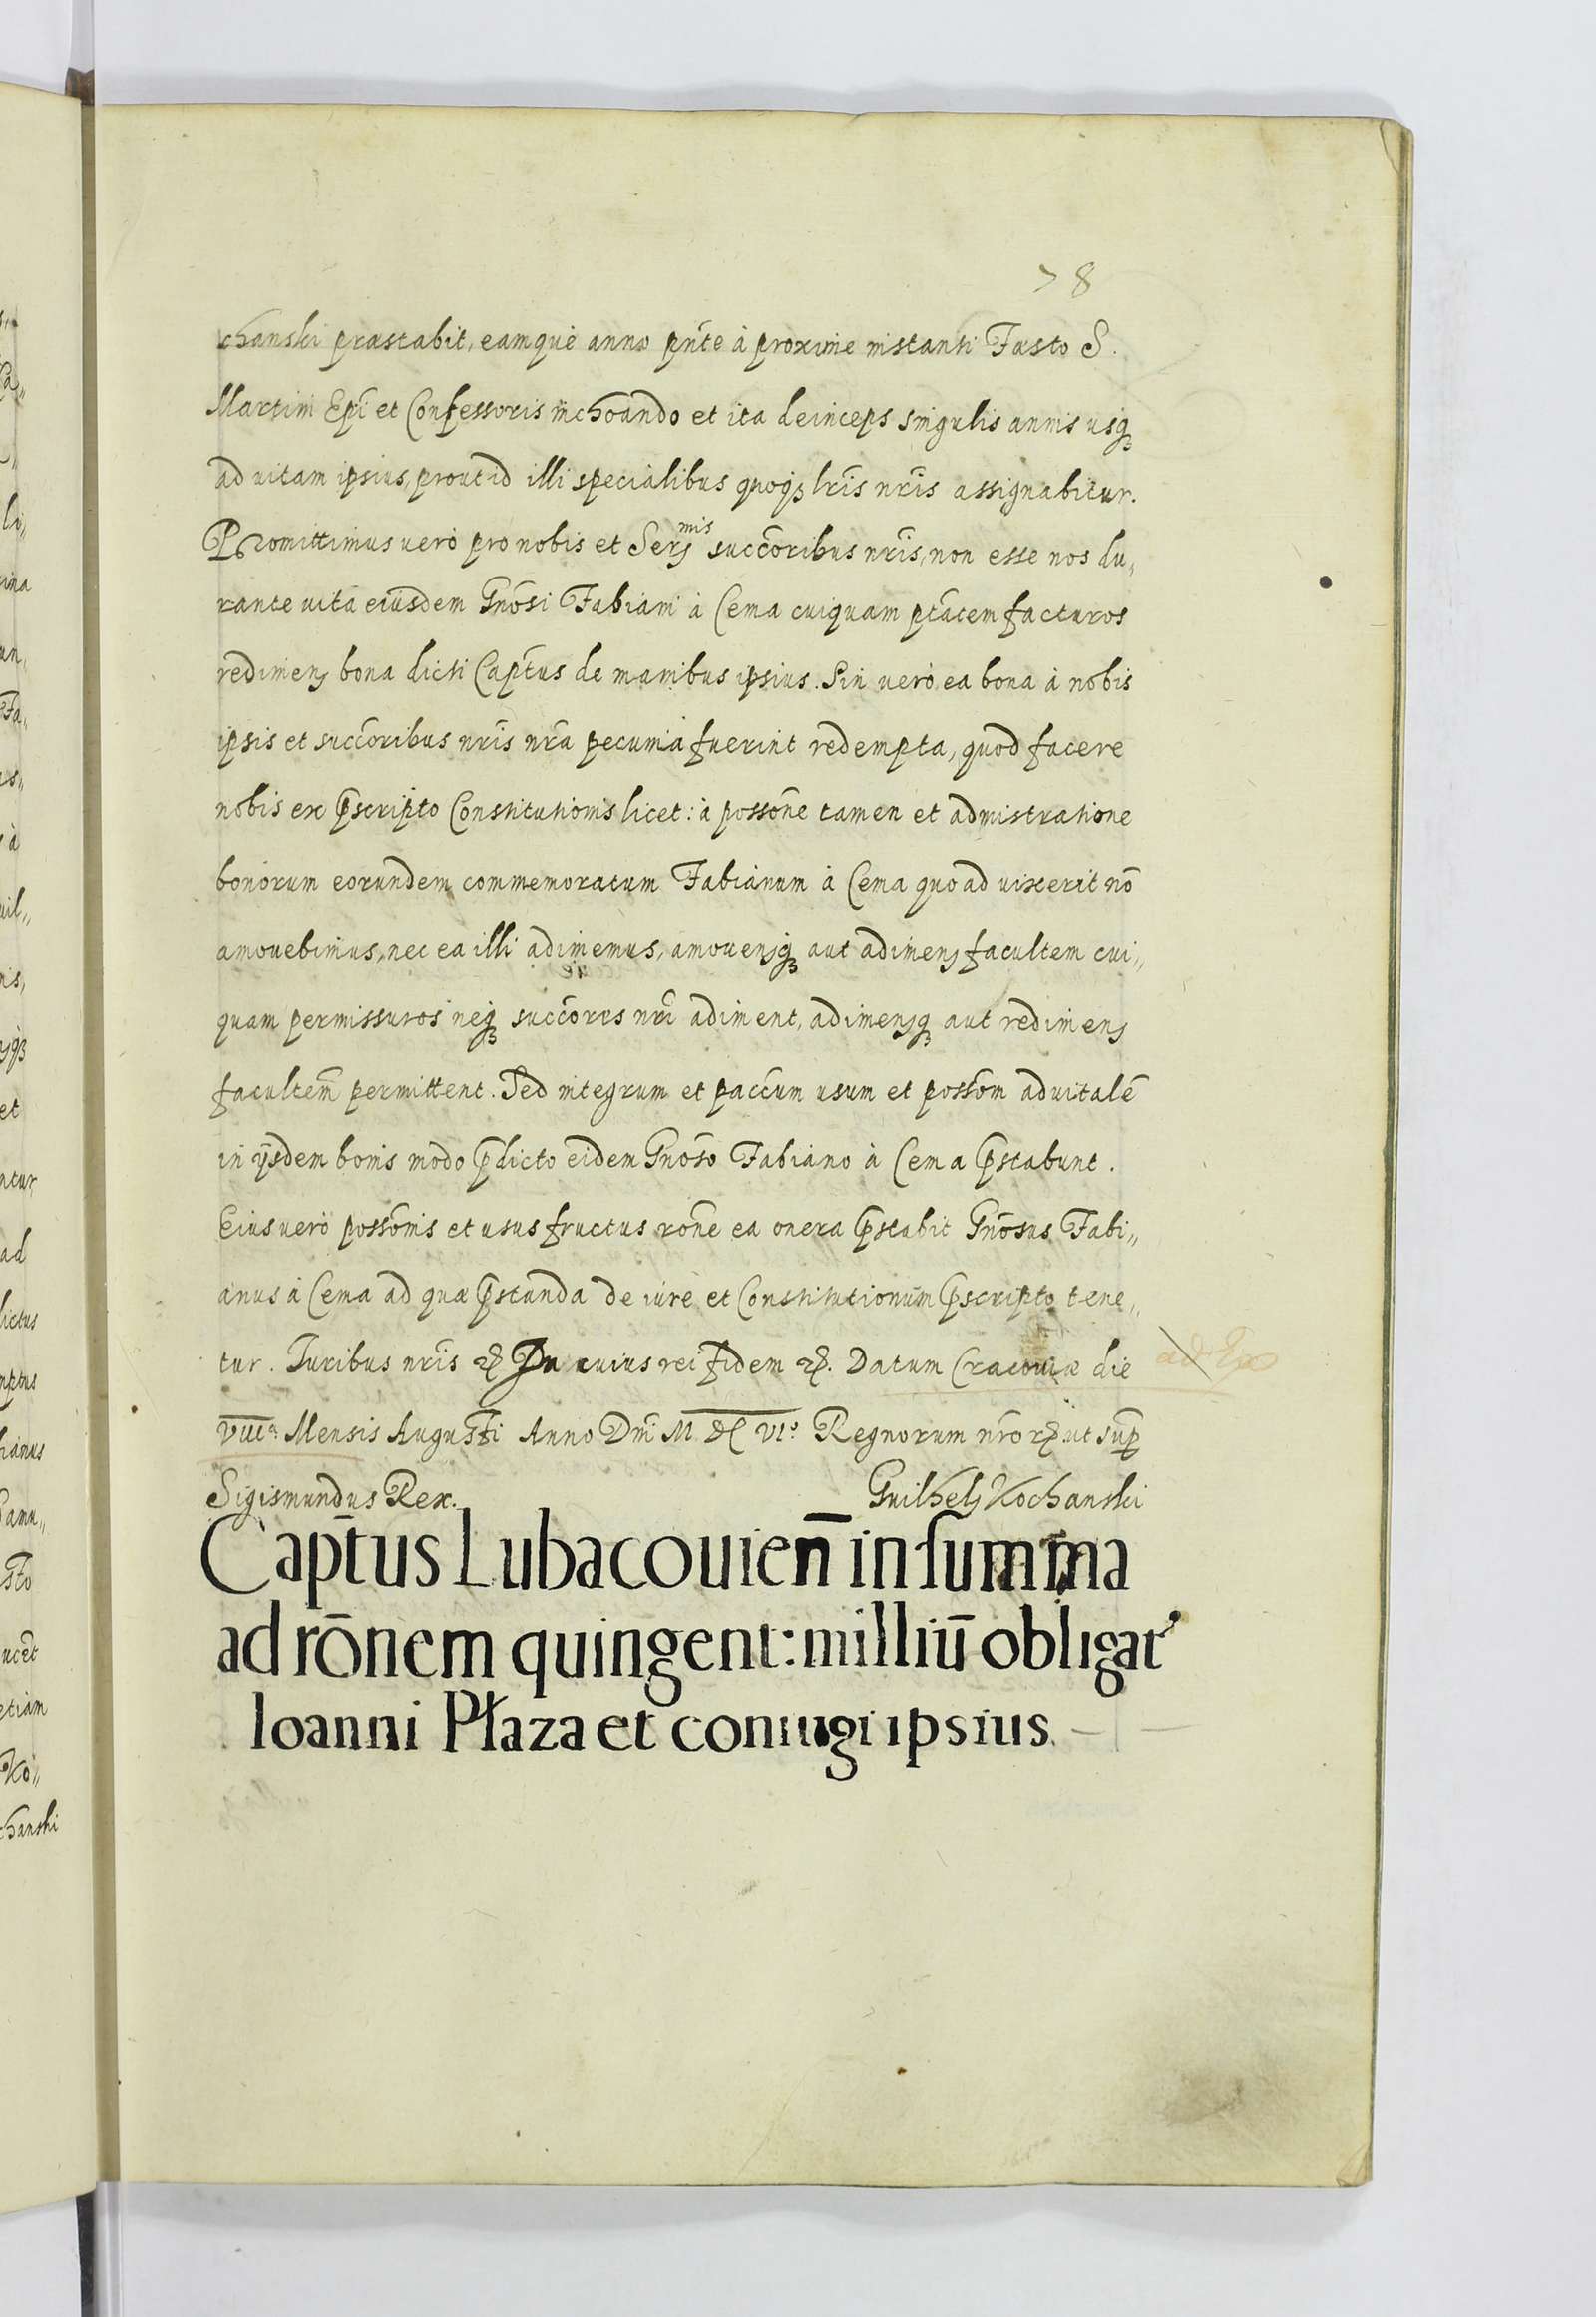 78
chanski præstabit, eamque anno pñte à proxime instanti Fæsto S.
Martini Epĩ et Confessoris inchoando et ita deinceps singulis annis usq3
ad vitam ipsius, prout id illi specialibus quoq3 lr̃is nr̃is assignabitur.
Promittimus vero pro nobis et Serꝫmis succ̃oribus nr̃is, non esse nos du„
rante vita eiusdem Gñosi Fabiani à Cema cuiquam ptãtem facturos
redimenꝫ bona dicti Cap̃tus de manibus ipsius. Sin vero ea bona à nobis
ipsis et succ̃oribus nr̃is nr̃a pecunia fuerint redempta, quod facere
nobis ex p̃scripto Constitutionis licet: à possõne tamen et admistratione
bonorum eorundem commemoratum Fabianum à Cema quoad vixerit nõ
amovebimus, nec ea illi adimemus, amovenꝫq3 aut adimenꝫ facultem cui„
quam permissuros neq3 succ̃ores nr̃i adiment, adimenꝫq3 aut redimenꝫ
facultem̃ permittent. Sed integrum et pacc̃um usum et possõm advitalẽ
in ijsdem bonis modo p̃dicto eidem Gñoso Fabiano à Cema p̃stabunt.
Eius vero possõnis et usus fructus rõne ea onera p̃stabit Gñosus Fabi„
anus à Cema ad quæ p̃standa de iure et Constitutionum p̃scripto tene„
tur. Iuribus nr̃is ꝛꝭ In cuius rei fidem ꝛꝭ. Datum Cracoviæ die
VIIIa. Mensis Augusti Anno Dñi M DC VIo. Regnorum nr̃orꝝ ut sup̃
Sigismundus Rex. Guilhelꝫ Kochanski
Cap̃tus Lubacouien̄ in summa
ad rōnem quingent: milliū obligat'
Ioanni Płaza et coniugi ipsius.